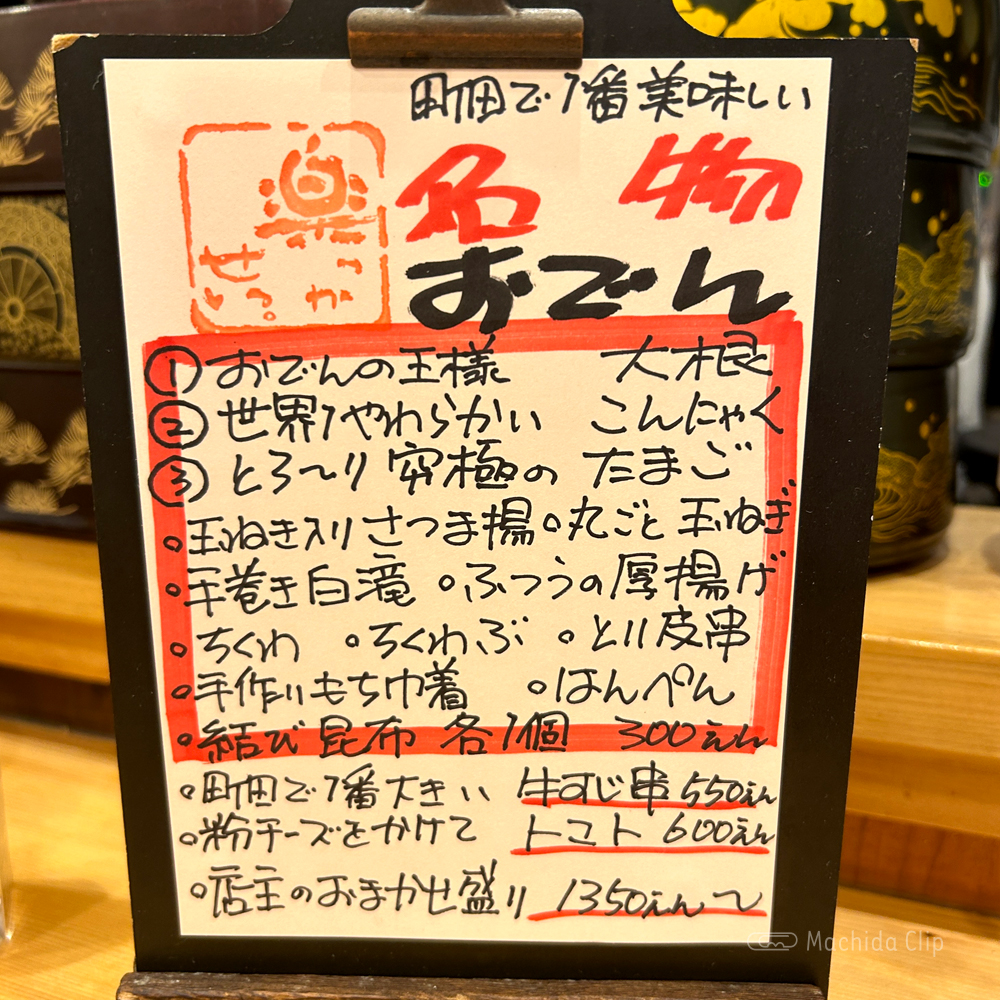 町田で1番美味しい
楽
せっかい。
名物
おでん
① おでんの王様 大根
② 世界1やわらかい こんにゃく
③ とろ〜り 究極の たまご
。玉ねぎ入りさつま揚 。丸ごと玉ねぎ
。手巻き白滝 。ふつうの厚揚げ
。ちくわ 。ちくわぶ 。とり皮串
。手作りもち巾着 。はんぺん
。結び昆布 各1個 300えん
。町田で1番大きい 牛すじ串 550えん
。粉チーズをかけて トマト 600えん
。店主のおまかせ盛り 1350えん〜
Machida Clip